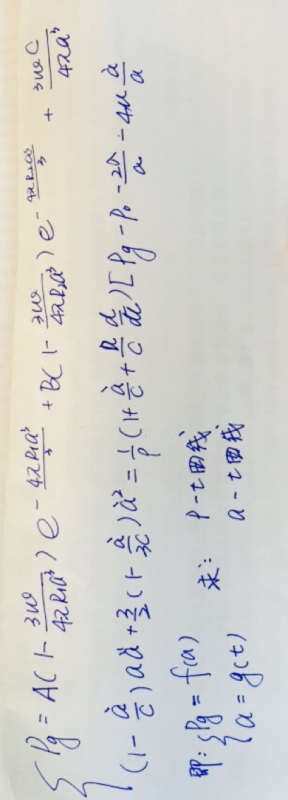 Pg = A(1 - 3ω/4πR₁a³) e^(-4πR₁a³/3) + B(1 - 3ω/4πR₂a³) e^(-4πR₂a³/3) + 3ωC/4πa³
(1 - ȧ/c)aä + 3/2(1 - ȧ/3c)ȧ² = 1/ρ(1 + ȧ/c + R/c d/dt)[Pg - P₀ - 2σ/a - 4μ ȧ/a
即: { Pg = f(a) 求: P-t曲线
a = g(t) a-t曲线